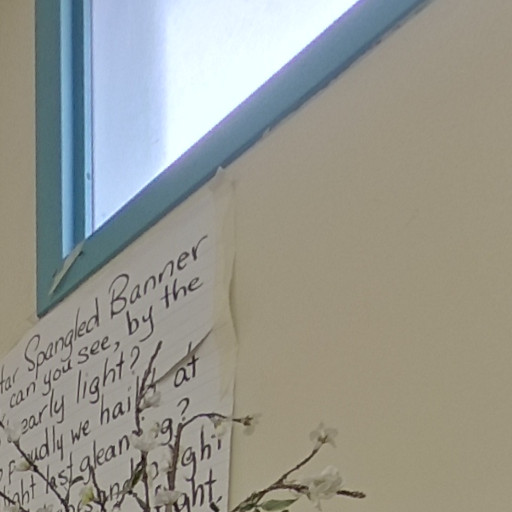 tar Spangled Banner
can you see, by the
early light?
oudly we hail at
ight last glean g?
and ghi
ight,